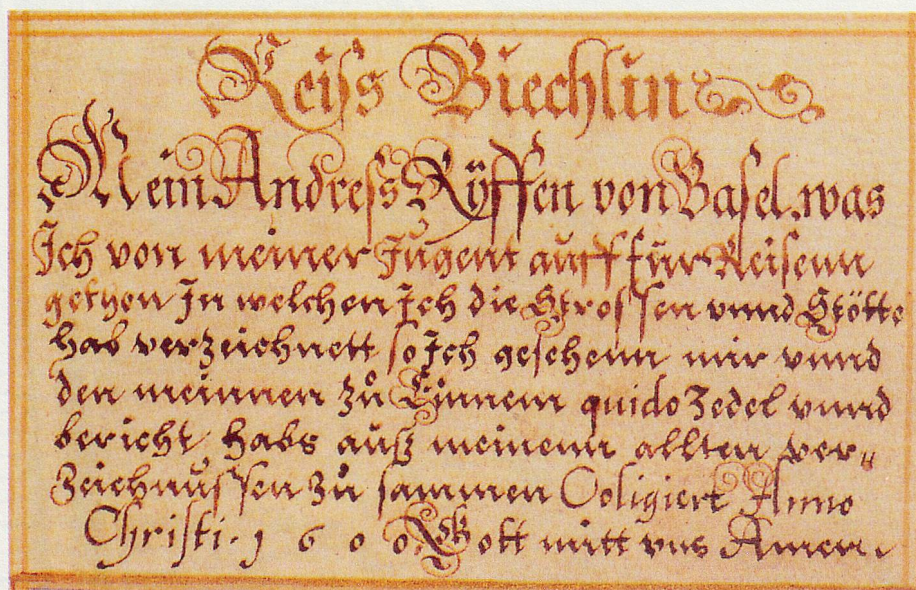 Reiss Biechlin
Mein Andress Rÿffen von Basel. was
Ich von meiner Jugent auff für Reisenn
gethon In welchen Ich die Strossen vnnd Stötte
hab verzeichnett so Ich gesehenn mir vnnd
den meinnen zů Einnem quido Zedel vnnd
bericht, habs auß meinenn allten ver„
Zeichnussen zů sammen Coligiert Anno
Christi. 1600 Gott mitt vns Amen.